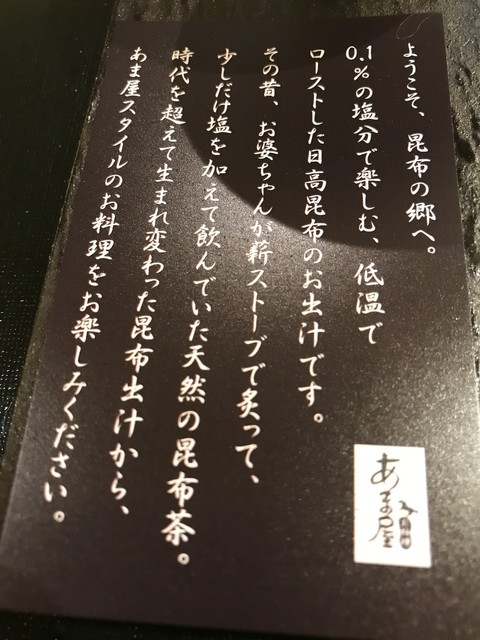 ようこそ、昆布の郷へ。
0.1%の塩分で楽しむ、低温で
ローストした日高昆布のお出汁です。
その昔、お婆ちゃんが薪ストーブで炙って、
少しだけ塩を加えて飲んでいた天然の昆布茶。
時代を超えて生まれ変わった昆布出汁から、
あま屋スタイルのお料理をお楽しみください。
あま屋